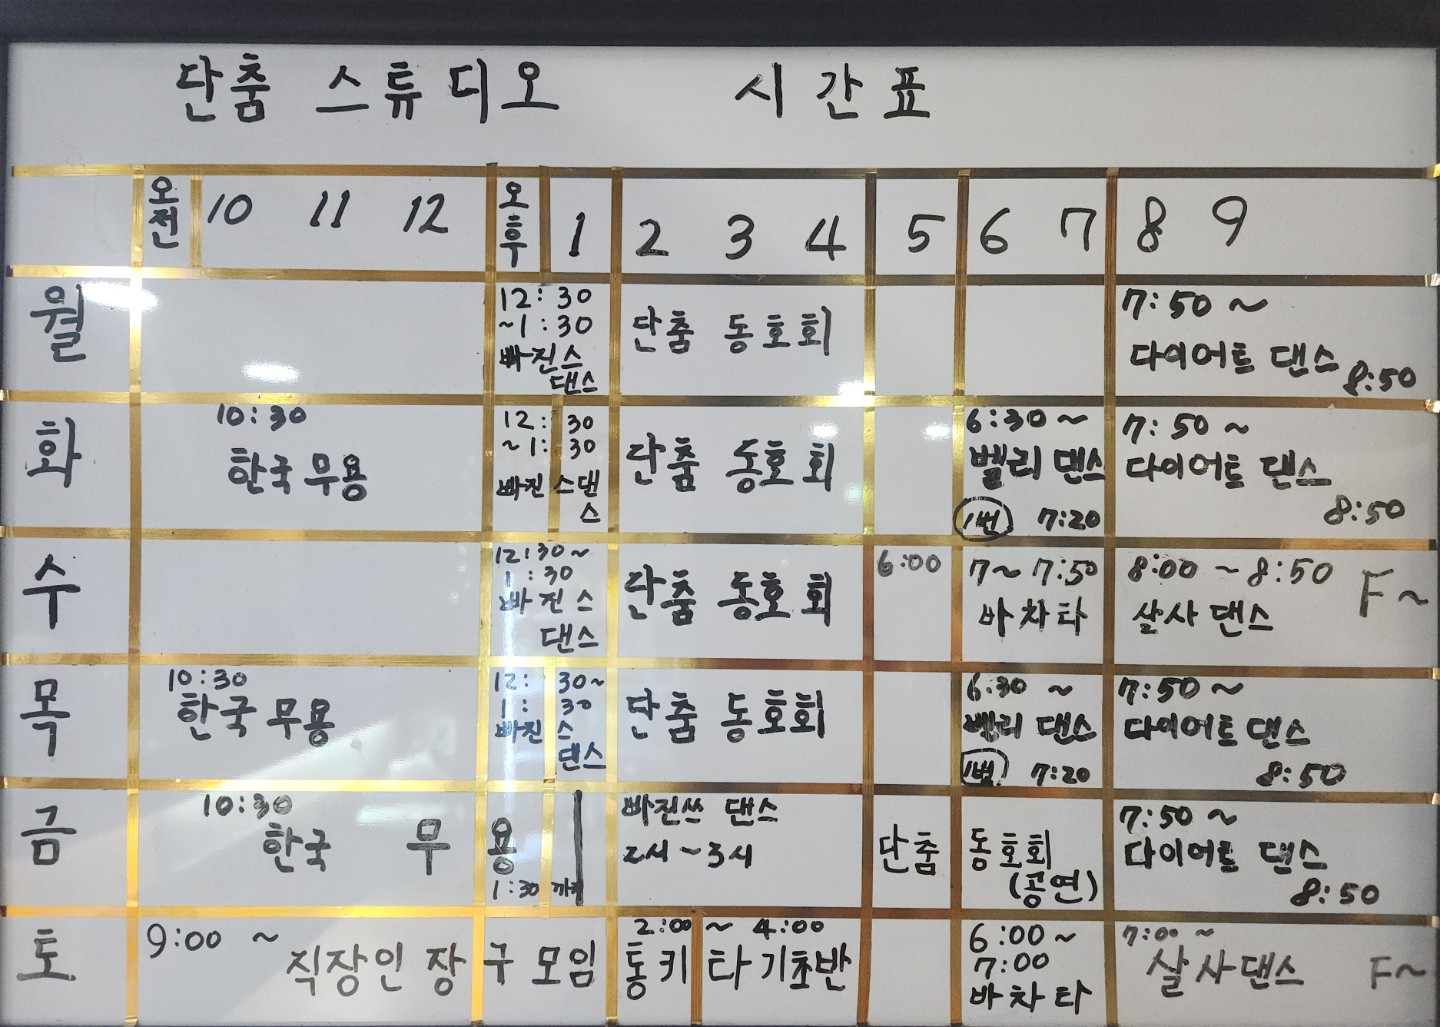 단춤 스튜디오 시간표
오전 10 11 12 오후 1 2 3 4 5 6 7 8 9
월
12:30
~1:30
빠진스
댄스
단춤 동호회
7:50 ~
다이어트 댄스
8:50
화
10:30
한국무용
12:30
~1:30
빠진스댄
스
단춤 동호회
6:30 ~
벨리댄스
1번 7:20
7:50 ~
다이어트 댄스
8:50
수
12:30~
1:30
빠진스
댄스
단춤 동호회
6:00
7~7:50
바차타
8:00 ~ 8:50
살사댄스
F~
목
10:30
한국무용
12:30~
1:30
빠진스
댄스
단춤 동호회
6:30 ~
벨리 댄스
1번 7:20
7:50 ~
다이어트 댄스
8:50
금
10:30
한국 무용
1:30 까지
빠진쓰 댄스
2시~3시
단춤 동호회
(공연)
7:50 ~
다이어트 댄스
8:50
토
9:00 ~
직장인 장구모임
2:00 ~ 4:00
통키타기초반
6:00 ~
7:00
바차타
7:00 ~
살사댄스
F~